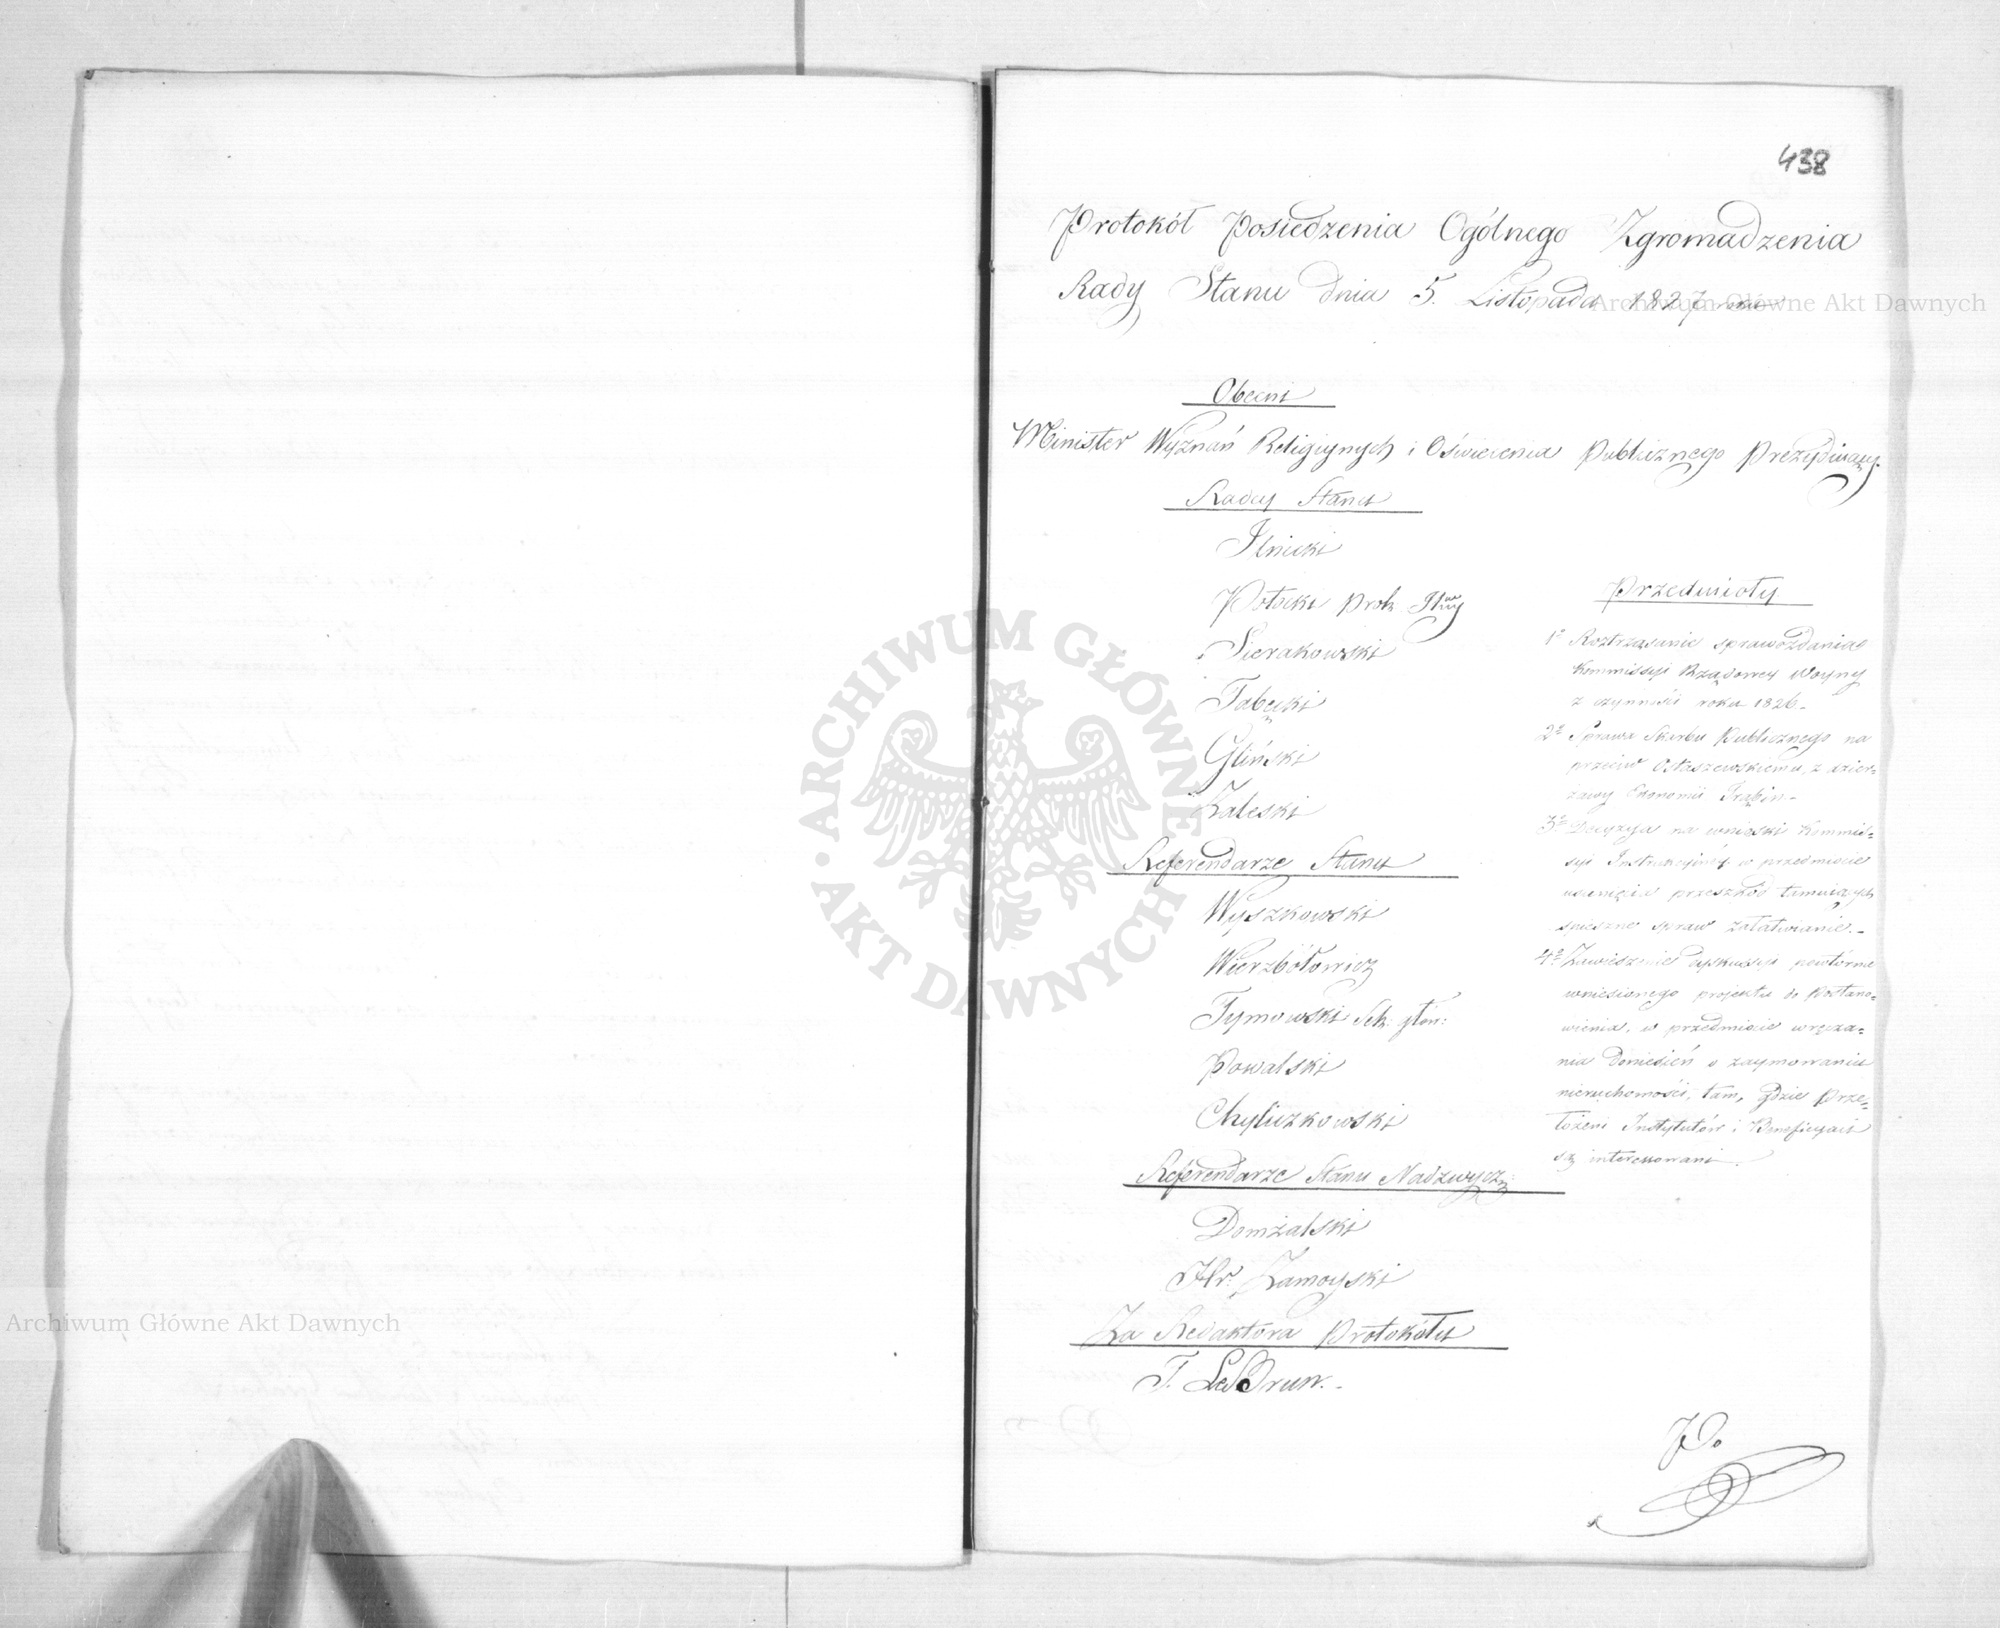 438
Protokół Posiedzenia Ogólnego Zgromadzenia
Rady Stanu dnia 5. Listopada 1827 roku
Obecni
Minister Wyznań Religiynych i Oświecenia Publicznego Prezyduiący.
Radcy Stanu
Ilnicki
Potocki Prok. Jlny
Sierakowski
Tabęcki
Gliński
Zaleski
Referendarze Stanu
Wyszkowski
Wierzbołowicz
Tymowski Sek: głów:
Powalski
Chyliczkowski
Referendarze Stanu Nadzwycz:
Domżalski
Hr. Zamoyski
Za Redaktora Protokółu
T. LeBrun.
Przedmioty
1º Roztrząsanie sprawozdania
Kommissyi Rządowey Woyny
z czynności roku 1826.
2º Sprawa Skarbu Publicznego na
przeciw Ostaszewskiemu, z dzier-
żawy Ekonomii Trąbin.
3º Decyzya na wnioski Kommis-
syi Instrukcyiney w przedmiocie
usunięcia przeszkód tamuiących
spieszne spraw załatwianie.
4º Zawieszenie dyskussyi powtórnie
wniesionego projektu do Postano-
wienia, w przedmiocie wręcza-
nia doniesień o zaymowaniu
nieruchomości, tam, gdzie Prze-
łożeni Instytutów i Beneficyaci
są interessowani.
Archiwum Główne Akt Dawnych
ARCHIWUM GŁÓWNE AKT DAWNYCH
Archiwum Główne Akt Dawnych